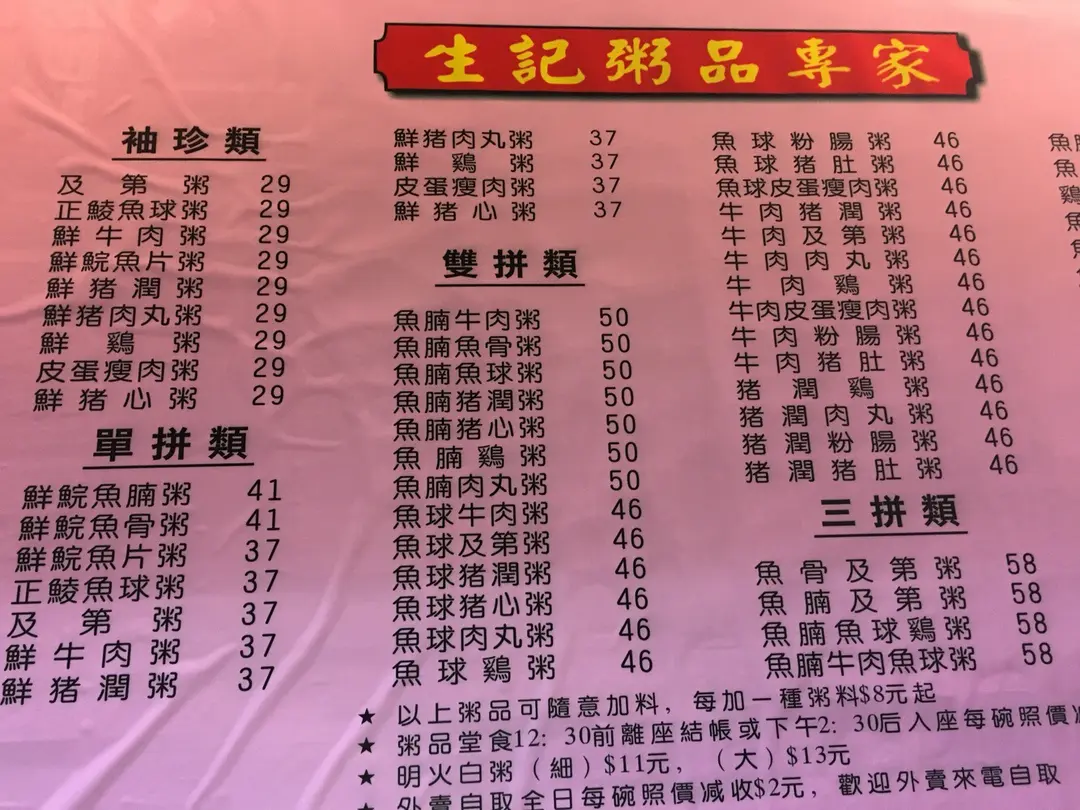 生記粥品專家
袖珍類
及第粥 29
正鯪魚球粥 29
鮮牛肉粥 29
鮮鯇魚片粥 29
鮮猪潤粥 29
鮮猪肉丸粥 29
鮮鷄粥 29
皮蛋瘦肉粥 29
鮮猪心粥 29
單拼類
鮮鯇魚腩粥 41
鮮鯇魚骨粥 41
鮮鯇魚片粥 37
正鯪魚球粥 37
及第粥 37
鮮牛肉粥 37
鮮猪潤粥 37
鮮猪肉丸粥 37
鮮鷄粥 37
皮蛋瘦肉粥 37
鮮猪心粥 37
雙拼類
魚腩牛肉粥 50
魚腩魚骨粥 50
魚腩魚球粥 50
魚腩猪潤粥 50
魚腩猪心粥 50
魚腩鷄粥 50
魚腩肉丸粥 50
魚球牛肉粥 46
魚球及第粥 46
魚球猪潤粥 46
魚球猪心粥 46
魚球肉丸粥 46
魚球鷄粥 46
魚球粉腸粥 46
魚球猪肚粥 46
魚球皮蛋瘦肉粥 46
牛肉猪潤粥 46
牛肉及第粥 46
牛肉肉丸粥 46
牛肉鷄粥 46
牛肉皮蛋瘦肉粥 46
牛肉粉腸粥 46
牛肉猪肚粥 46
猪潤鷄粥 46
猪潤肉丸粥 46
猪潤粉腸粥 46
猪潤猪肚粥 46
三拼類
魚骨及第粥 58
魚腩及第粥 58
魚腩魚球鷄粥 58
魚腩牛肉魚球粥 58
★ 以上粥品可隨意加料，每加一種粥料$8元起
★ 粥品堂食12：30前離座結帳或下午2：30后入座每碗照價
★ 明火白粥（細）$11元，（大）$13元
★ 外賣自取全日每碗照價减收$2元，歡迎外賣來電自取